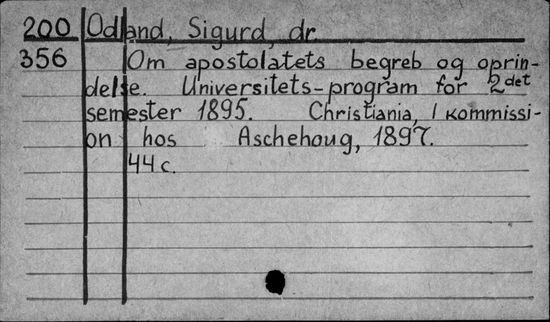 200 Odland, Sigurd, dr.
356 Om apostolatets begreb og oprin-
delse. Universitets-program for 2det
semester 1895. Christiania, I kommissi-
on hos Aschehoug, 1897.
44 c.